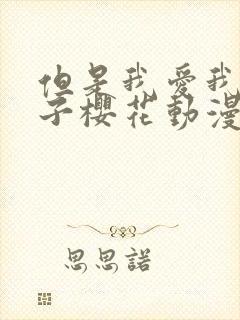 但是我愛我
子櫻花動漫
思思諾